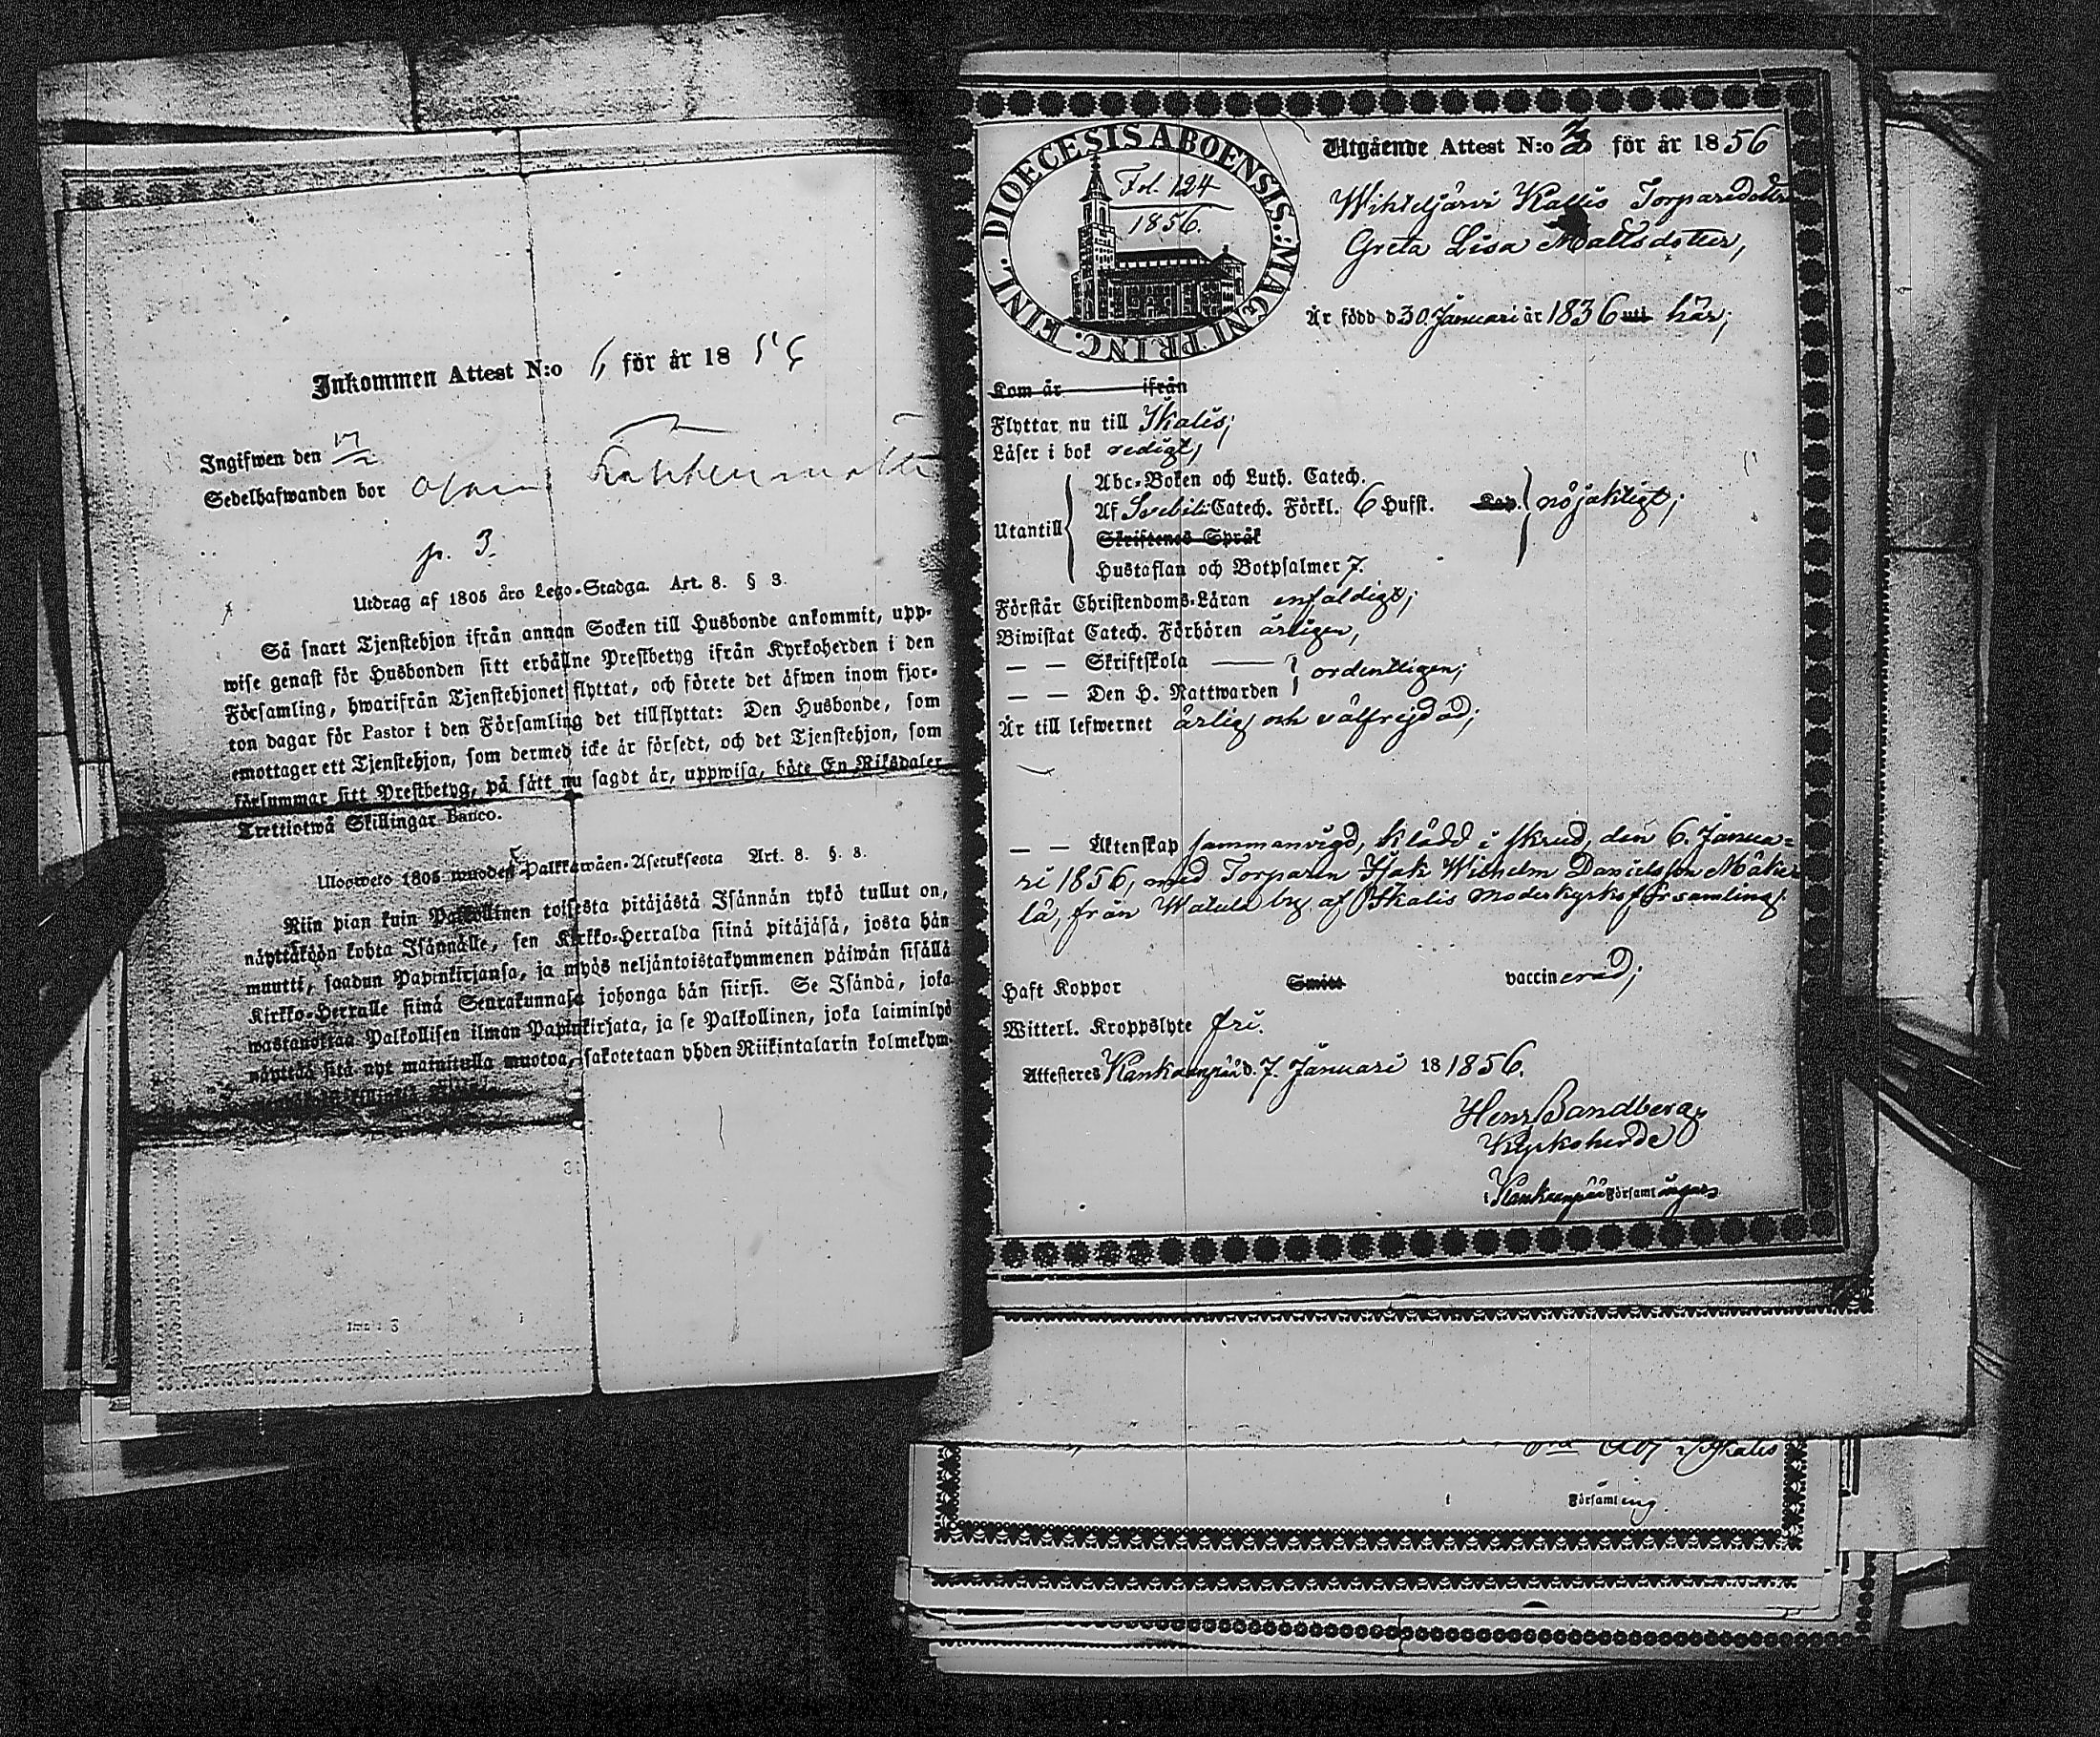 Inkommen Attest N:o för år 18
Ingifwen den
Sedelhafwanden bor
p. 3.
Utdrag af 1805 års Lego-Stadga. Art. 8. § 3.
Så snart Tjenstehjon ifrån annan Socken till Husbonde ankommit, upp-
wise genast för Husbonden sitt erhållne Prestbetyg ifrån Kyrkoherden i den
Församling, hwarifrån Tjenstehjonet flyttat, och förete det äfwen inom fjor-
ton dagar för Pastor i den Församling det tillflyttat: Den Husbonde, som
emottager ett Tjenstehjon, som dermed icke är försedt, och det Tjenstehjon, som
försummar sitt Prestbetyg, på sätt nu sagdt är, uppwisa, böte En Riksdaler
Trettiotwå Skillingar Banco.
Ulosweto 1805 wuoden Palkkawäen-Asetuksesta Art. 8. §. 8.
Niin pian kuin Palkollinen toisesta pitäjästä Isännän tykö tullut on,
näyttäköön kohta Isännälle, sen Kirkko-Herralda siinä pitäjäsä, josta hän
muutti, saadun Papinkirjansa, ja myös neljäntoistakymmenen päiwän sisällä
Kirkko-Herralle siinä Seurakunnasa johonga hän siirsi. Se Isändä, joka
wastanottaa Palkollisen ilman Papinkirjata, ja se Palkollinen, joka laiminlyö
näyttää sitä nyt mainitulla muotoa, sakotetaan yhden Riikintalarin kolmekym-
DIOECESIS ABOENSIS. MAGNI PRINC. FINL.
Fol. 124
1856.
Utgående Attest N:o 3 för år 1856
Wihteljärvi Kallis Torparedotter
Greta Lisa Mattsdotter,
Är född d 30. Januari år 1836 uti här;
Kom år ifrån
Flyttar nu till Ikalis;
Läser i bok redigt,
Utantill
Abc-Boken och Luth. Catech.
Af Svebili Catech. Förkl. 6 Hufst. Kap. nöjaktigt;
Skriftenes Språk
Hustaflan och Botpsalmer 7.
Förstår Christendoms-Läran enfaldigt;
Biwistat Catech. Förhören årligen,
— — Skriftskola —
— — Den H. Nattwarden ordentligen;
Är till lefwernet ärlig och välfrejdad;
— — Äktenskap sammanvigd, klädd i skrud, den 6. Janua-
ri 1856, med Torparen Isak Wilhelm Danielsson Mäke-
lä, från Watula by af Ikalis Moderkyrkoförsamling.
Haft Koppor Smitt vaccinerad;
Witterl. Kroppslyte fri.
Attesteres Kankaanpää d. 7. Januari 18 1856.
Henr Sandberg
Kyrkoherde
i Kankaanpää Församlingar
Ikalis
i Församling.